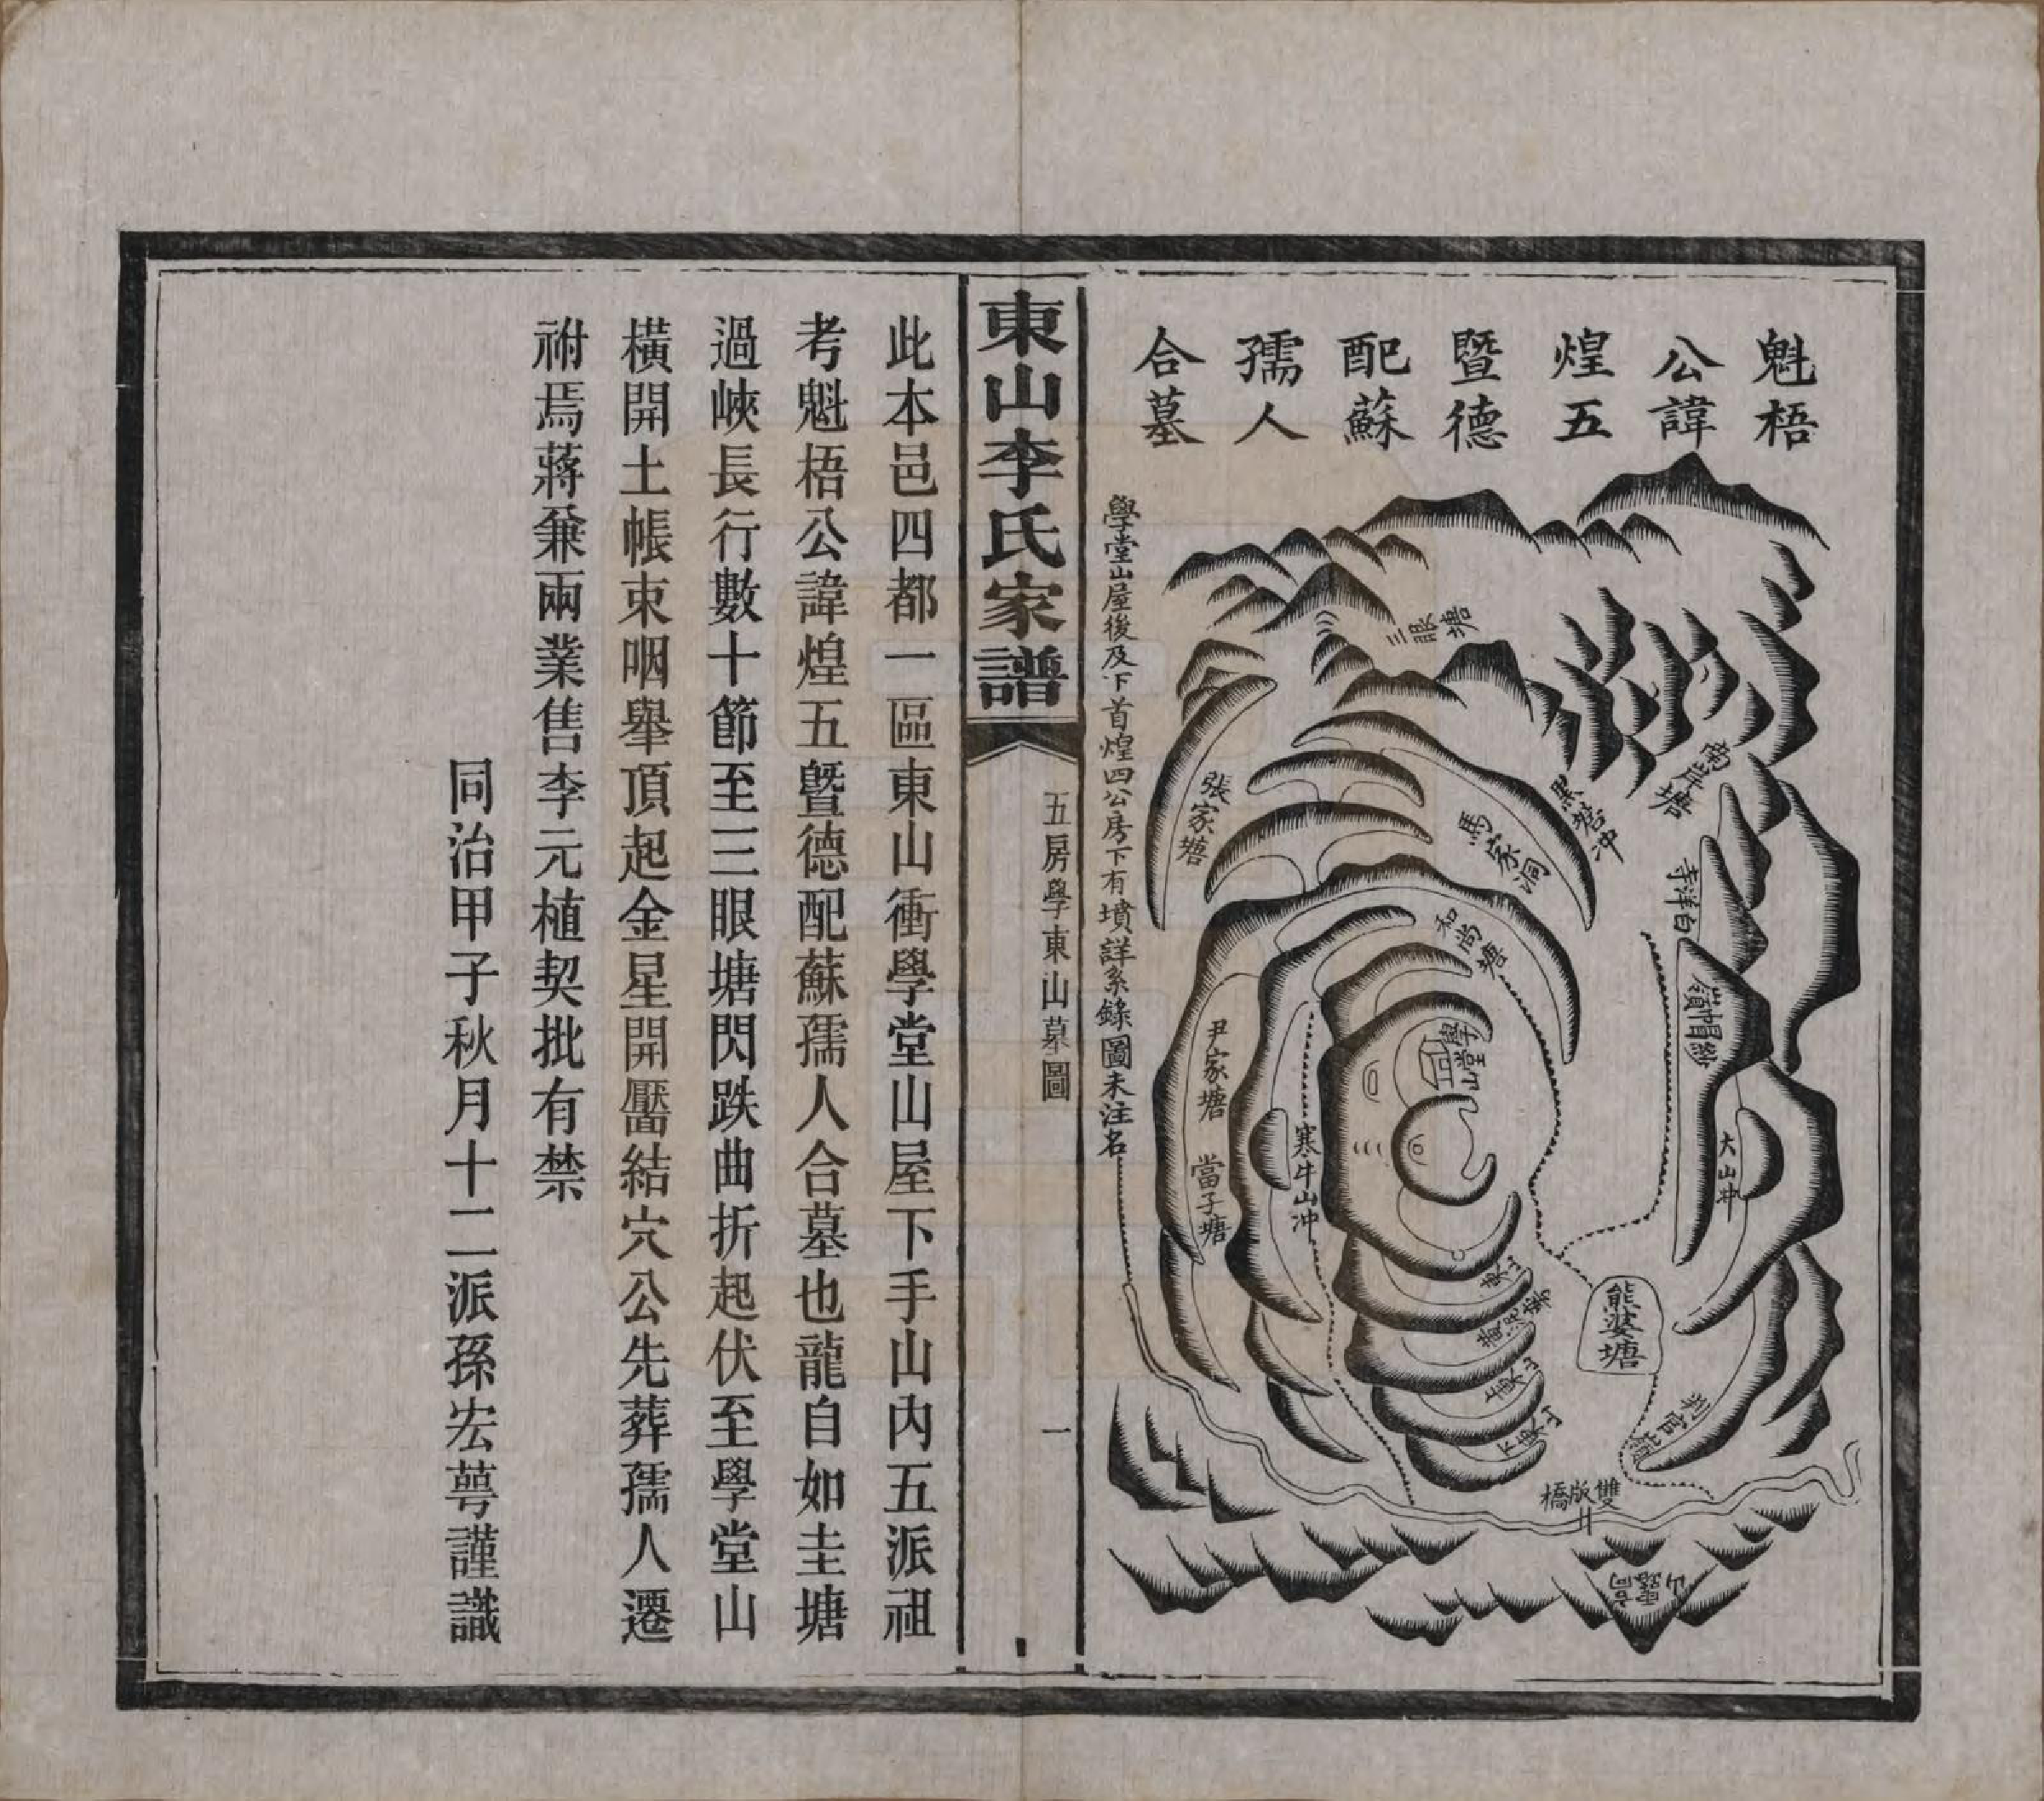 魁梧
公諱
煌五
暨德
配蘇
孺人
合墓
三眼塘
南岸塘
張家塘
馬家洞
白洋寺
和尚塘
紗帽嶺
學堂山
尹家塘
當子塘
寒牛山冲
大山冲
熊婆塘
黄泥塝
上東山
下東山
判官嶺
雙版橋
高露山
學堂山屋後及下首煌四公房下有墳詳系錄圖未注名
東山李氏家譜
五房學東山墓圖
一
此本邑四都一區東山衝學堂山屋下手山內五派祖
考魁梧公諱煌五暨德配蘇孺人合墓也龍自如圭塘
過峽長行數十節至三眼塘閃跌曲折起伏至學堂山
橫開土帳束咽舉頂起金星開壓結穴公先葬孺人遷
祔焉蔣兼兩業售李元植契批有禁
同治甲子秋月十二派孫宏蕚謹識